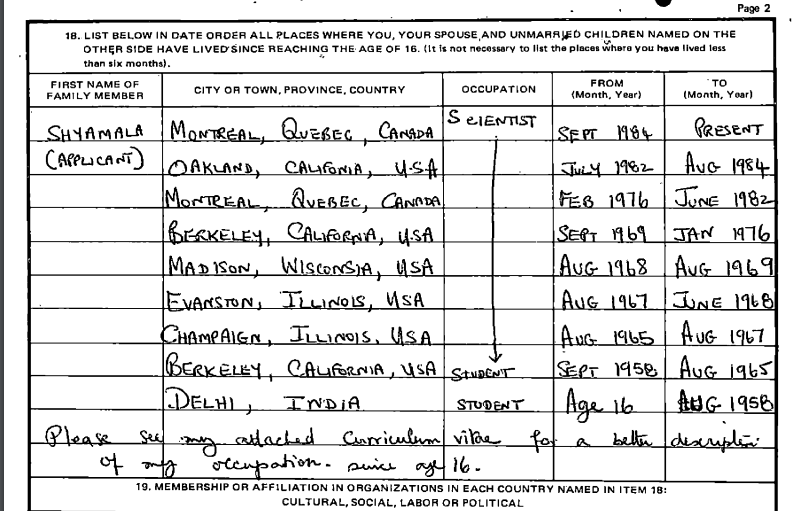 Page 2
18. LIST BELOW IN DATE ORDER ALL PLACES WHERE YOU, YOUR SPOUSE AND UNMARRIED CHILDREN NAMED ON THE
OTHER SIDE HAVE LIVED SINCE REACHING THE AGE OF 16. (It is not necessary to list the places where you have lived less
than six months).
FIRST NAME OF FAMILY MEMBER CITY OR TOWN, PROVINCE, COUNTRY OCCUPATION FROM (Month, Year) TO (Month, Year)
SHYAMALA MONTREAL, QUEBEC, CANADA SCIENTIST SEPT 1984 PRESENT
(APPLICANT) OAKLAND, CALIFONIA, USA JULY 1982 AUG 1984
MONTREAL, QUEBEC, CANADA FEB 1976 JUNE 1982
BERKELEY, CALIFORNIA, USA SEPT 1969 JAN 1976
MADISON, WISCONSIA, USA AUG 1968 AUG 1969
EVANSTON, ILLINOIS, USA AUG 1967 JUNE 1968
CHAMPAIGN, ILLINOIS, USA AUG 1965 AUG 1967
BERKELEY, CALIFORNIA, USA STUDENT SEPT 1958 AUG 1965
DELHI, INDIA STUDENT Age 16 AUG 1958
Please see my attached Curriculum vitae for a better description
of my occupation. since age 16.
19. MEMBERSHIP OR AFFILIATION IN ORGANIZATIONS IN EACH COUNTRY NAMED IN ITEM 18:
CULTURAL, SOCIAL, LABOR OR POLITICAL